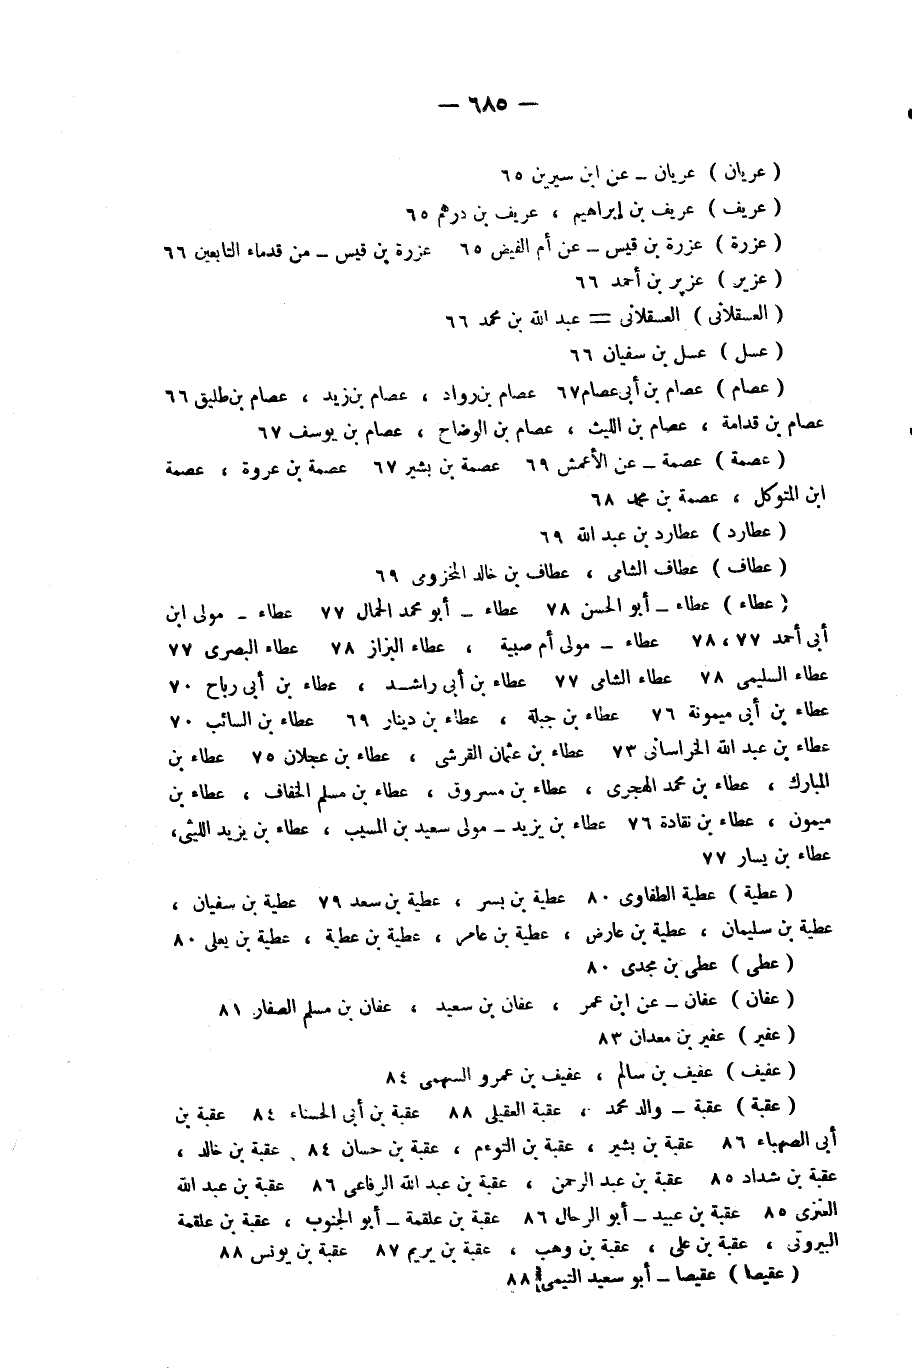 — ٦٨٥ —
( عريان ) عريان – عن ابن سيرين ٦٥
( عريف ) عريف بن إبراهيم ، عريف بن درهم ٦٥
( عزرة ) عزرة بن قيس – عن أم الفيض ٦٥ عزرة بن قيس – من قدماء التابعين ٦٦
( عزير ) عزير بن أحمد ٦٦
( العسقلانى ) العسقلانى = عبد الله بن محمد ٦٦
( عسل ) عسل بن سفيان ٦٦
( عصام ) عصام بن أبى عصام ٦٧ عصام بن رواد ، عصام بن زيد ، عصام بن طليق ٦٦
عصام بن قدامة ، عصام بن الليث ، عصام بن الوضاح ، عصام بن يوسف ٦٧
( عصمة ) عصمة – عن الأعمش ٦٩ عصمة بن بشير ٦٧ عصمة بن عروة ، عصمة
ابن المتوكل ، عصمة بن محمد ٦٨
( عطارد ) عطارد بن عبد الله ٦٩
( عطاف ) عطاف الشامى ، عطاف بن خالد المخزومى ٦٩
( عطاء ) عطاء – أبو الحسن ٧٨ عطاء – أبو محمد الحمال ٧٧ عطاء – مولى ابن
أبى أحمد ٧٧ ، ٧٨ عطاء – مولى أم صبية ، عطاء البزاز ٧٨ عطاء البصرى ٧٧
عطاء السليمى ٧٨ عطاء الشامى ٧٧ عطاء بن أبى راشد ، عطاء بن أبى رباح ٧٠
عطاء بن أبى ميمونة ٧٦ عطاء بن جبلة ، عطاء بن دينار ٦٩ عطاء بن السائب ٧٠
عطاء بن عبد الله الخراسانى ٧٣ عطاء بن عثمان القرشى ، عطاء بن عجلان ٧٥ عطاء بن
المبارك ، عطاء بن محمد الهجرى ، عطاء بن مسروق ، عطاء بن مسلم الخفاف ، عطاء بن
ميمون ، عطاء بن نقادة ٧٦ عطاء بن يزيد – مولى سعيد بن المسيب ، عطاء بن يزيد الليثى،
عطاء بن يسار ٧٧
( عطية ) عطية الطفاوى ٨٠ عطية بن بسر ، عطية بن سعد ٧٩ عطية بن سفيان ،
عطية بن سليمان ، عطية بن عارض ، عطية بن عامر ، عطية بن عطية ، عطية بن يعلى ٨٠
( عطى ) عطى بن مجدى ٨٠
( عفان ) عفان – عن ابن عمر ، عفان بن سعيد ، عفان بن مسلم الصفار ٨١
( عفير ) عفير بن معدان ٨٣
( عفيف ) عفيف بن سالم ، عفيف بن عمرو السهمى ٨٤
( عقبة ) عقبة – والد محمد ، عقبة العقيلى ٨٨ عقبة بن أبى الحسناء ٨٤ عقبة بن
أبى الصهباء ٨٦ عقبة بن بشير ، عقبة بن التوءم ، عقبة بن حسان ٨٤ عقبة بن خالد ،
عقبة بن شداد ٨٥ عقبة بن عبد الرحمن ، عقبة بن عبد الله الرفاعى ٨٦ عقبة بن عبد الله
العنزى ٨٥ عقبة بن عبيد – أبو الرحال ٨٦ عقبة بن علقمة – أبو الجنوب ، عقبة بن علقمة
البيروتى ، عقبة بن على ، عقبة بن وهب ، عقبة بن يريم ٨٧ عقبة بن يونس ٨٨
( عقيصا ) عقيصا – أبو سعيد التيمى ٨٨